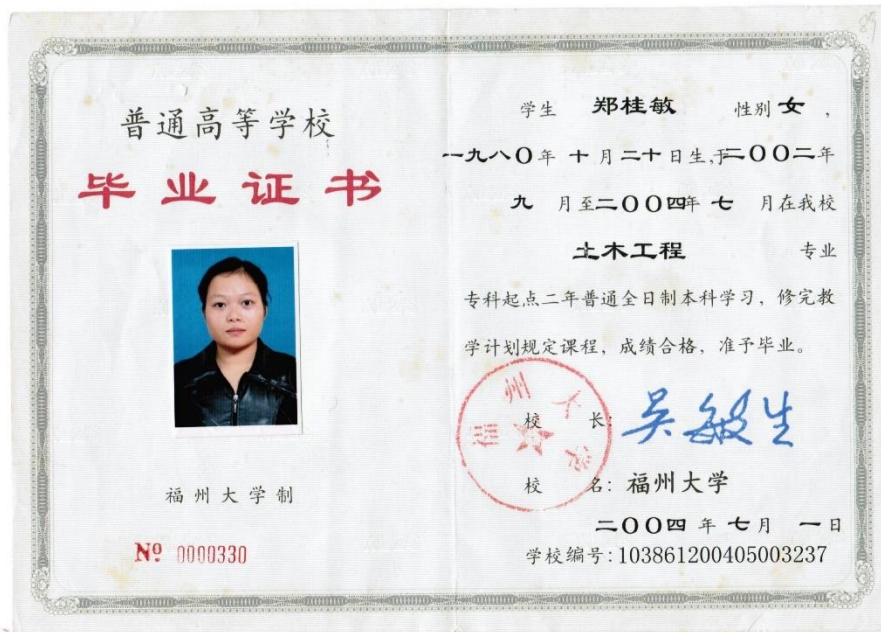 普通高等学校
毕业证书
福州大学制
№ 0000330
学生 郑桂敏 性别 女，
一九八〇年 十月二十日生,于二〇〇二年
九 月至二〇〇四年 七 月在我校
土木工程 专业
专科起点二年普通全日制本科学习，修完教
学计划规定课程，成绩合格，准予毕业。
福州大学
校 长: 吴敏生
校 名: 福州大学
二〇〇四 年 七月 一日
学校编号:103861200405003237